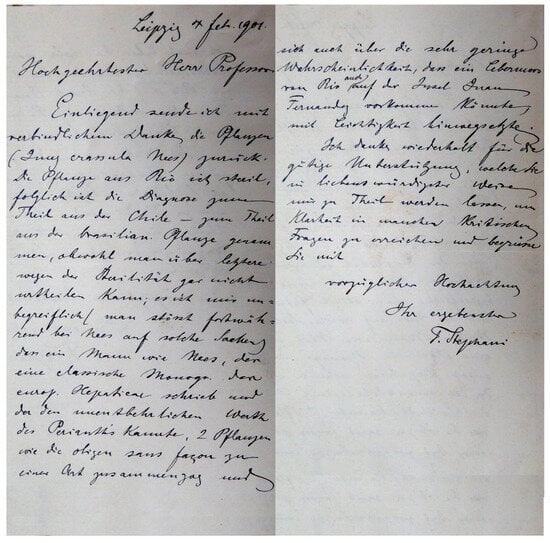 Leipzig 4 feb. 1901.
Hochgeehrtester Herr Professor
Einliegend sende ich mit
verbindlichem Danke die Pflanzen
(Jung crassula Nees) zurück.
Die Pflanze aus Rio ist steril,
folglich ist die Diagnose zum
Theil aus der Chile – zum Theil
aus der brasilian. Pflanze genom
men, obwohl man über letztere
wegen der Sterilität gar nicht
urtheilen kann; es ist mir un-
begreiflich (man stösst fortwäh-
rend bei Nees auf solche Sachen)
dass ein Mann wie Nees, der
eine classische Monogr. der
europ. Hepaticae schrieb und
der den unentbehrlichen Werth
des Perianths kannte, 2 Pflanzen
wie die obigen sans façon zu
einer Art zusammenzog und
sich auch über die sehr geringe
Wahrscheinlichkeit, dass ein Lebermoos
von Rio auch auf der Insel Juan
Fernandez vorkommen könnte,
mit Leichtigkeit hinwegsetzte.
Ich danke wiederholt für die
gütige Unterstützung, welche Sie
in liebenswürdigster Weise
mir zu Theil werden lassen, um
Klarheit in manchen kritischen
Fragen zu erreichen und begrüsse
Sie mit
vorzüglicher Hochachtung
Ihr ergebenster
F. Stephani